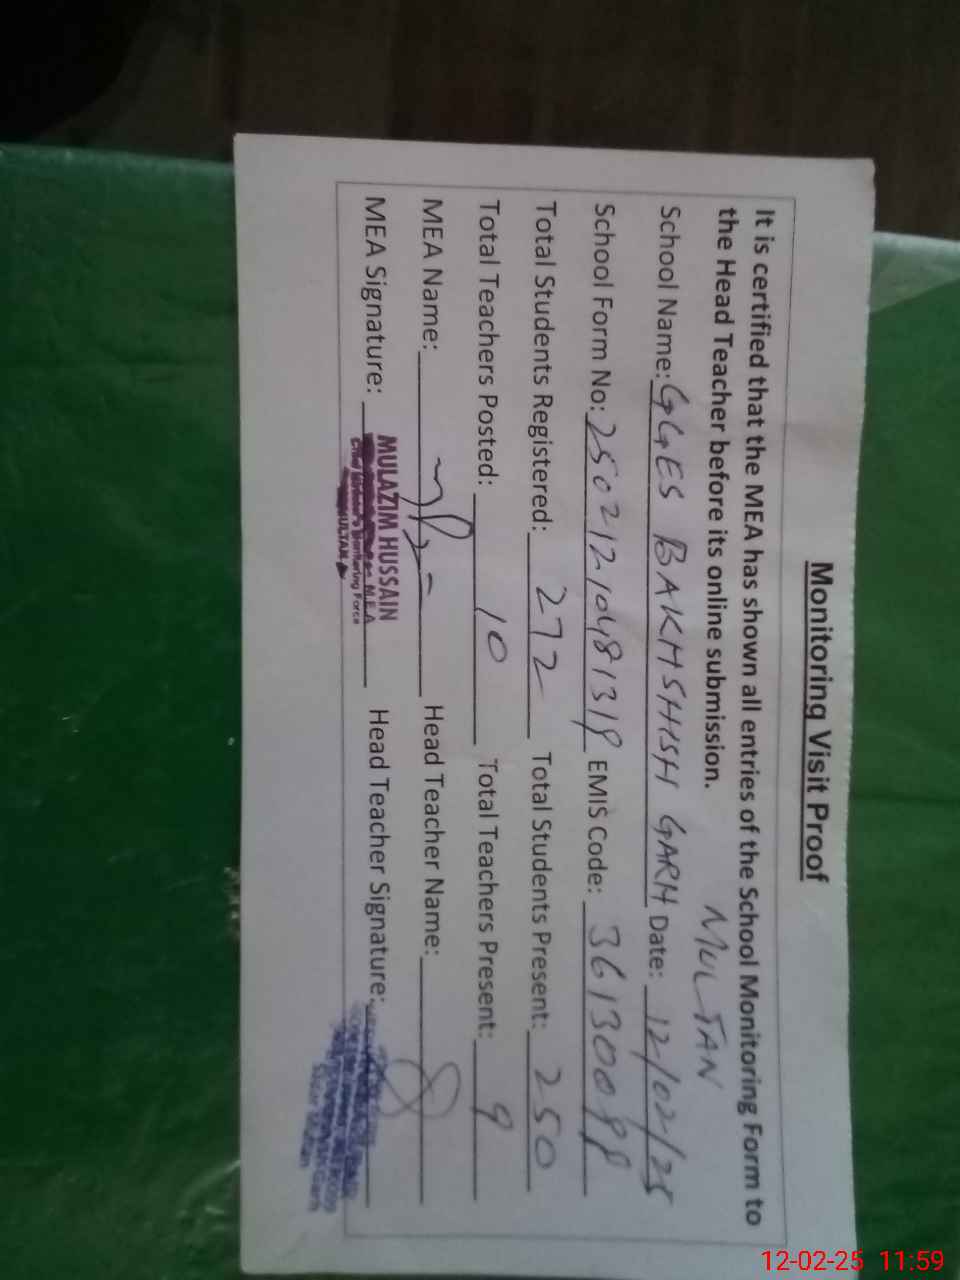 Monitoring Visit Proof
It is certified that the MEA has shown all entries of the School Monitoring Form to
the Head Teacher before its online submission.
MULTAN
School Name: GGES BAKHSHSH GARH Date: 12/02/25
School Form No: EMIS Code:
Total Students Registered: 272 Total Students Present: 250
Total Teachers Posted: 10 Total Teachers Present: 9
MEA Name: Head Teacher Name:
MEA Signature: Head Teacher Signature:
MULAZIM HUSSAIN
M.E.A
Monitoring Force
MULTAN
12-02-25 11:59